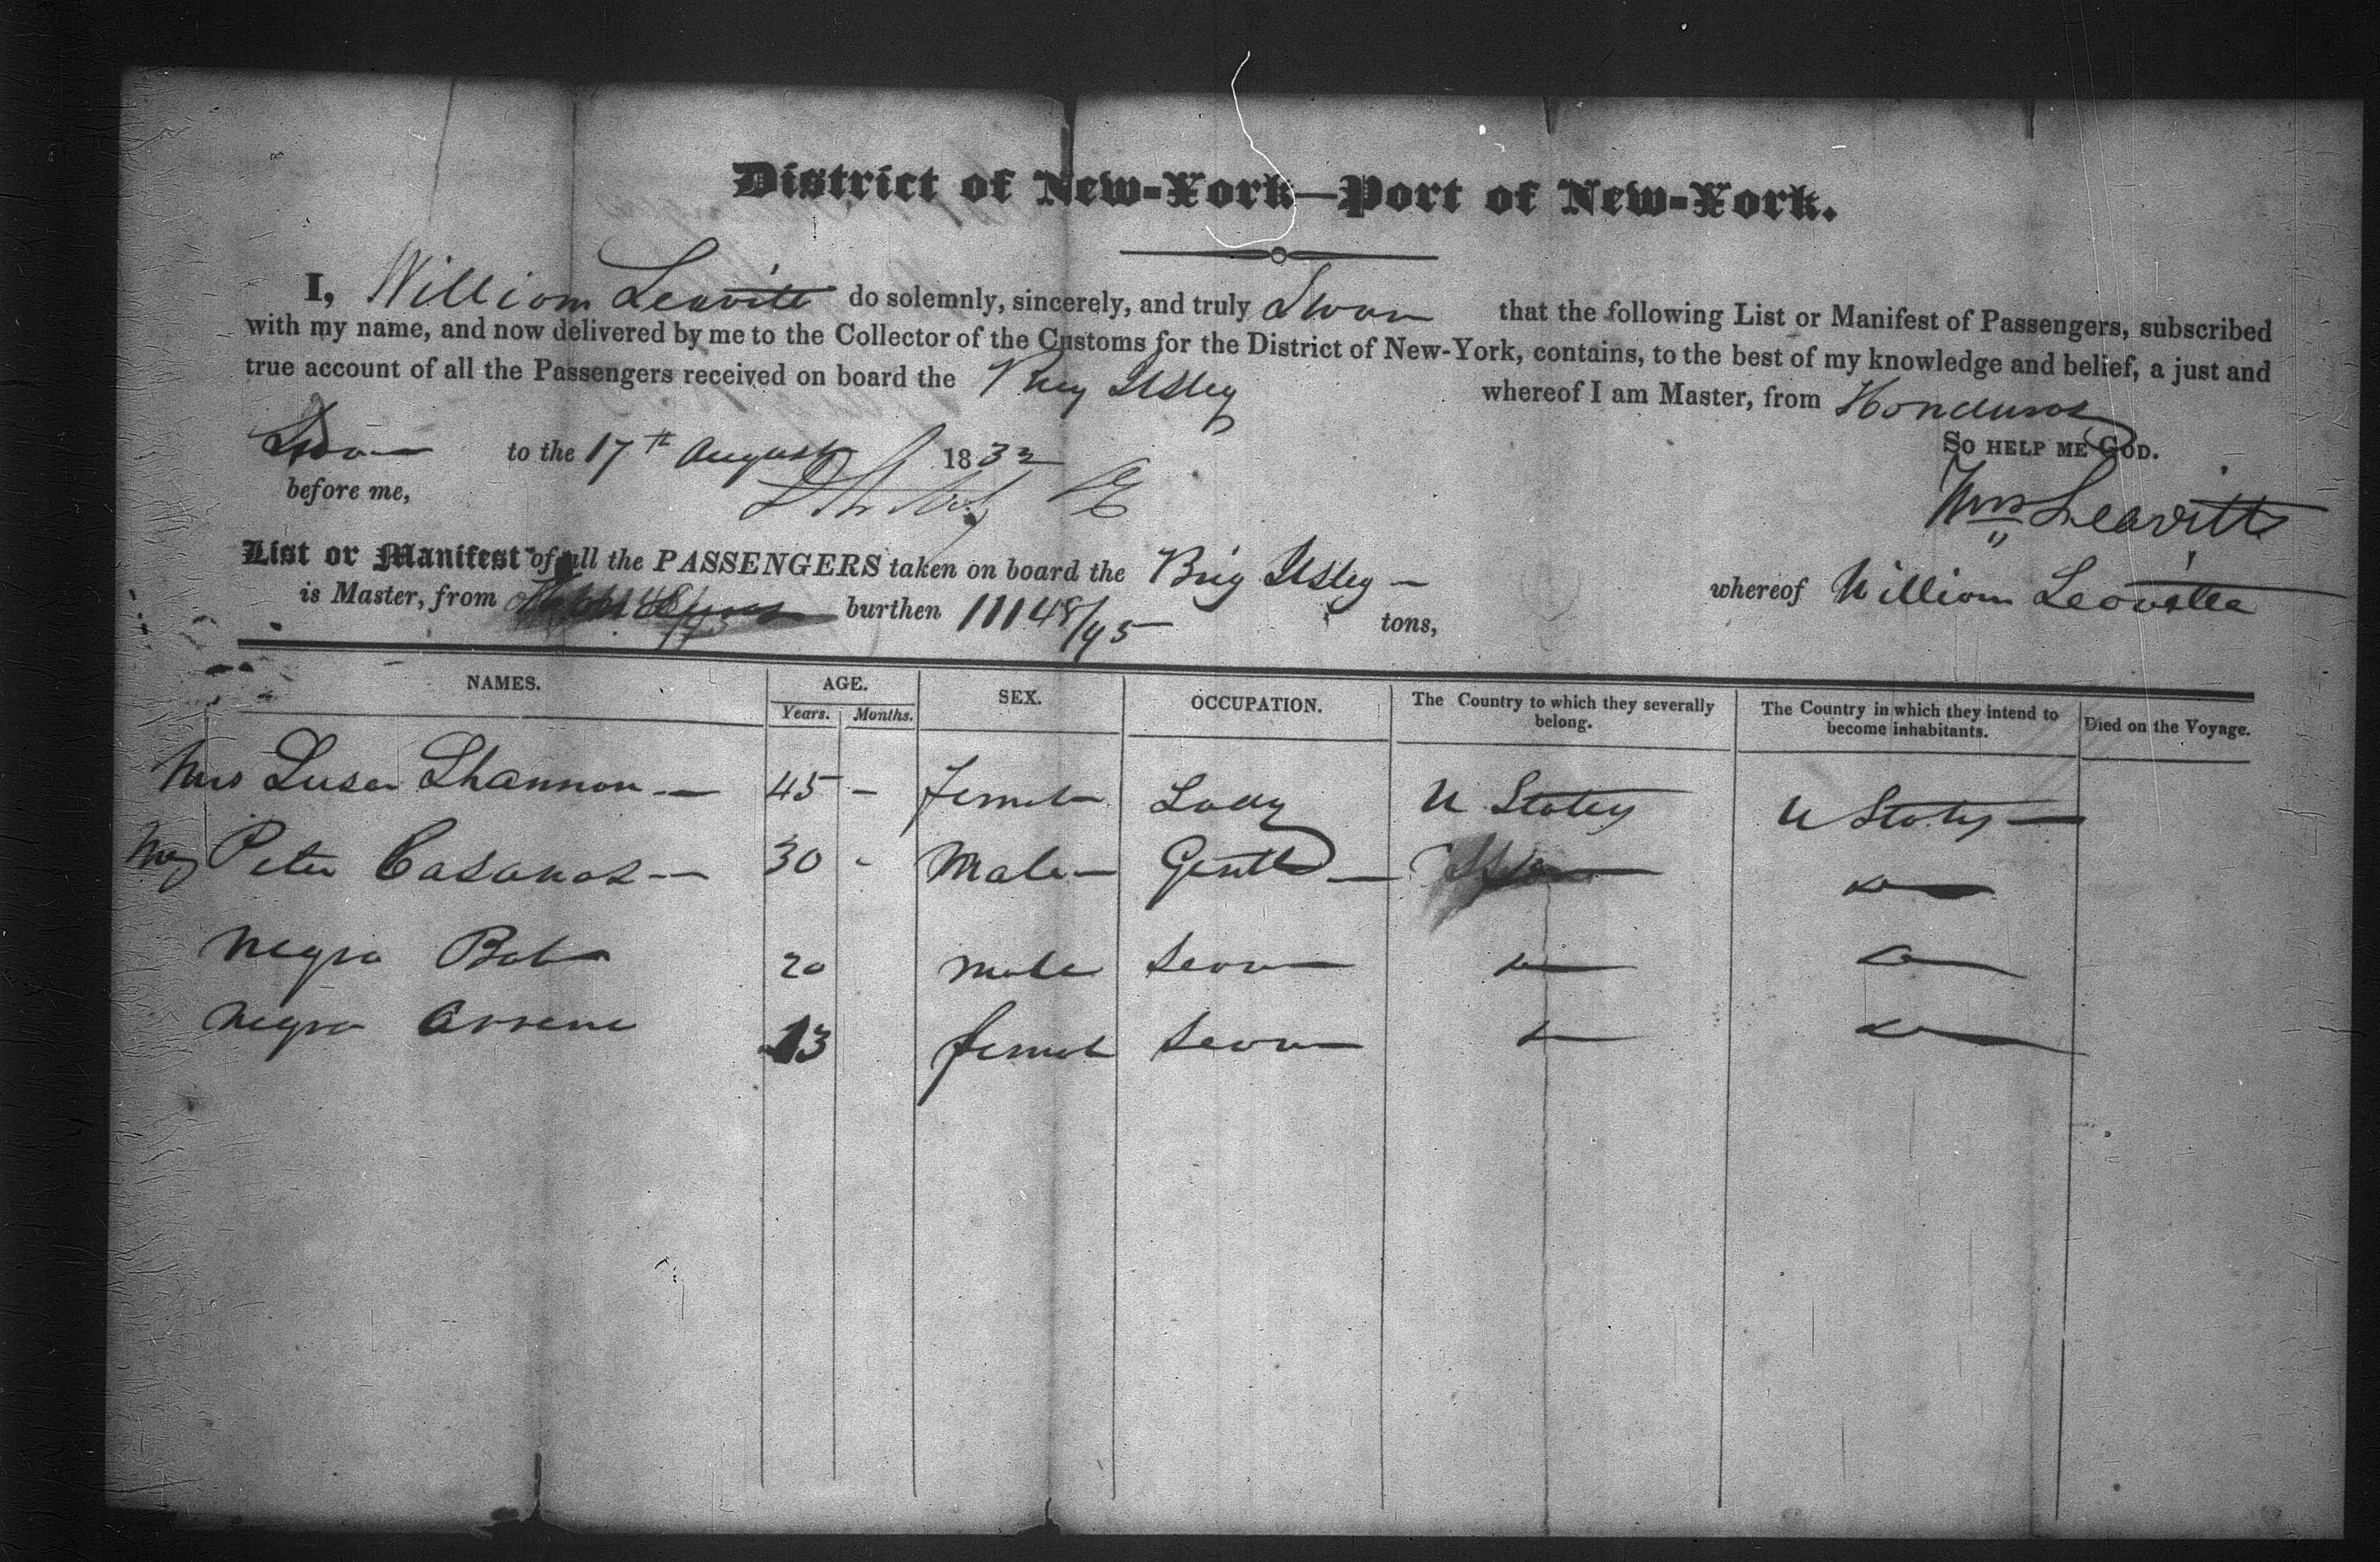 District of New-York—Port of New-York.
I, William Leavitt do solemnly, sincerely, and truly Swear that the following List or Manifest of Passengers, subscribed
with my name, and now delivered by me to the Collector of the Customs for the District of New-York, contains, to the best of my knowledge and belief, a just and
true account of all the Passengers received on board the Brig Ilsley whereof I am Master, from Honduras
So help me God.
to the 17th August 1832
before me,
Wm Leavitt
List or Manifest of all the PASSENGERS taken on board the Brig Ilsley whereof William Leavitt
is Master, from burthen 111 48/95 tons,
NAMES. AGE. SEX. OCCUPATION. The Country to which they severally belong. The Country in which they intend to become inhabitants. Died on the Voyage.
Years. Months.
Mrs Susan Shannon 45 - Female Lady U States U States
Peter 30 - Male Gentle
Negro Bob 20 male
Negro 13 female